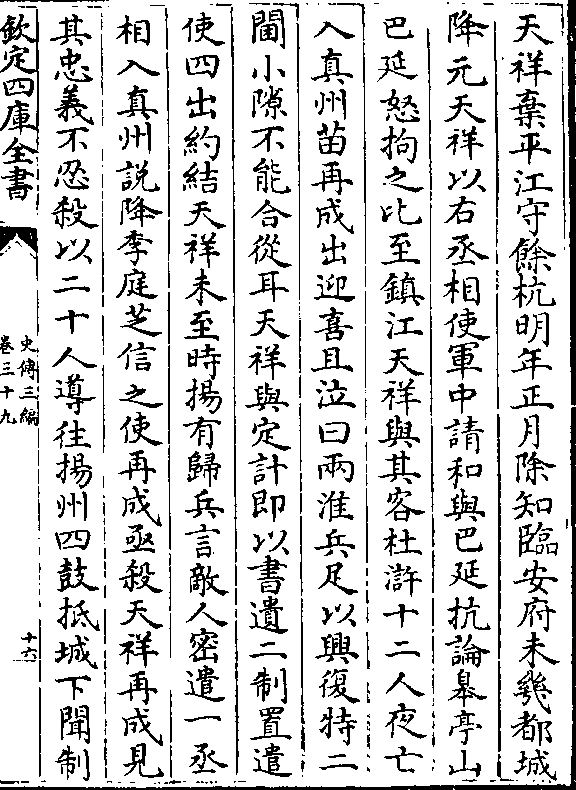 天祥棄平江守餘杭明年正月除知臨安府未幾都城
降元天祥以右丞相使軍中請和與巴延抗論皋亭山
巴延怒拘之北至鎮江天祥與其客杜滸十二人夜亡
入真州苗再成出迎喜且泣曰兩淮兵足以興復特二
閫小隙不能合從耳天祥與定計即以書遺二制置遣
使四出約結天祥未至時揚有歸兵言敵人密遣一丞
相入真州説降李庭芝信之使再成亟殺天祥再成見
其忠義不忍殺以二十人導往揚州四鼓抵城下聞制
欽定四庫全書
史傳三編
卷三十九
十六